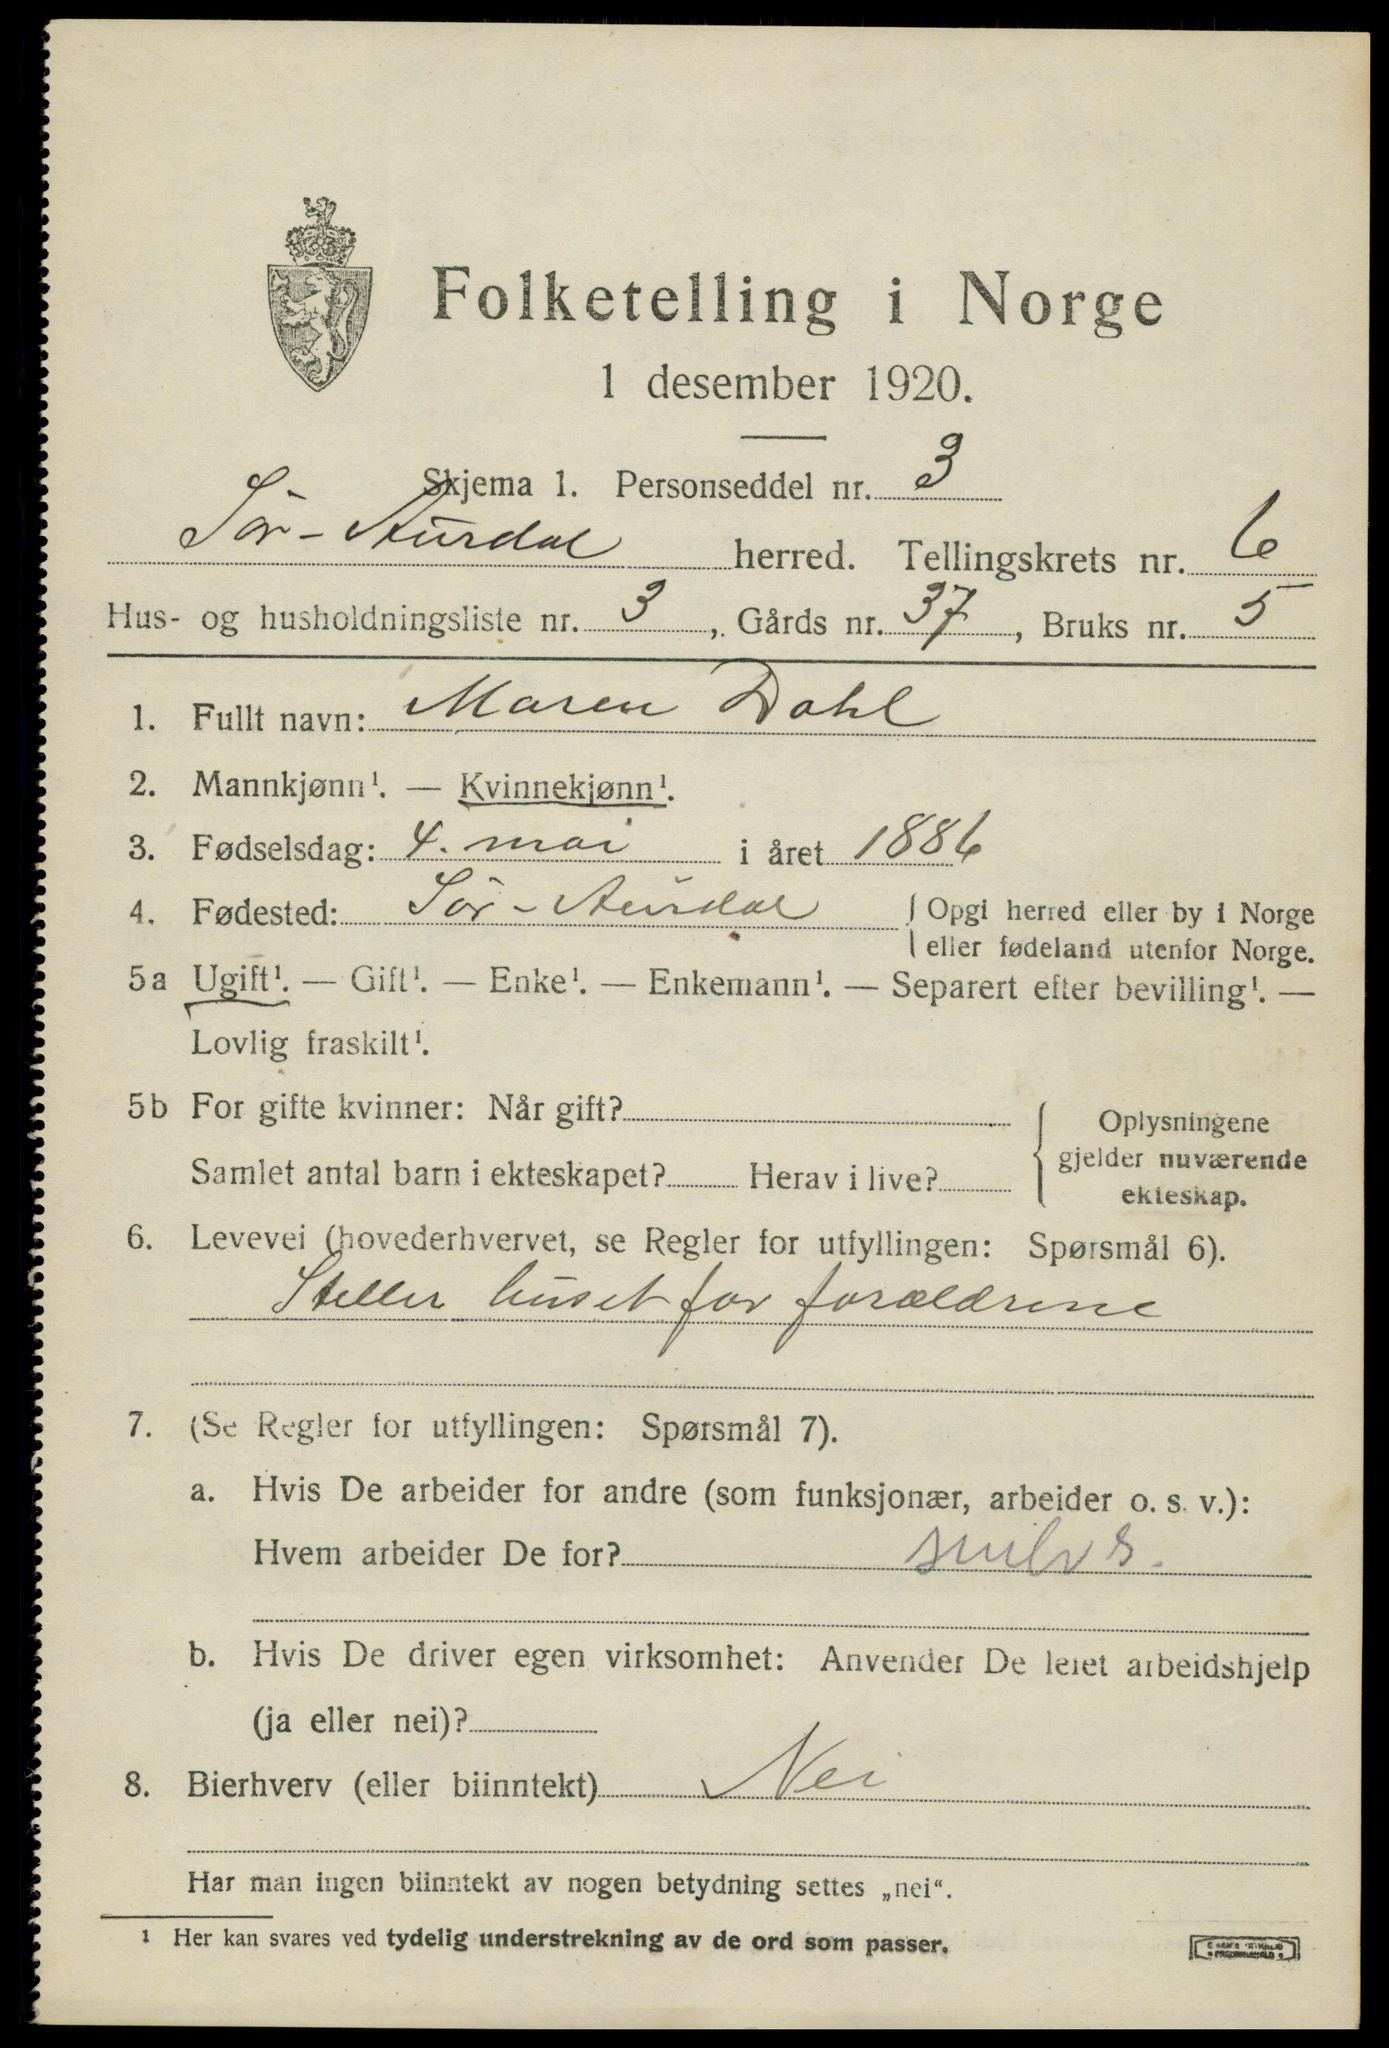 Folketelling i Norge
1 desember 1920.
Skjema 1. Personseddel nr. 3
Sør-Aurdal herred. Tellingskrets nr. 6
Hus- og husholdningsliste nr. 3, Gårds nr. 37, Bruks nr. 5
1. Fullt navn: Maren Dahl
2. Mannkjønn¹. — Kvinnekjønn¹.
3. Fødselsdag: 4. mai i året 1886
4. Fødested: Sør-Aurdal { Opgi herred eller by i Norge
eller fødeland utenfor Norge.
5a Ugift¹. — Gift¹. — Enke¹. — Enkemann¹. — Separert efter bevilling¹. —
Lovlig fraskilt¹.
5b For gifte kvinner: Når gift?
Samlet antal barn i ekteskapet? Herav i live?
{ Oplysningene
gjelder nuværende
ekteskap.
6. Levevei (hovederhvervet, se Regler for utfyllingen: Spørsmål 6).
Steller huset for forældrene
7. (Se Regler for utfyllingen: Spørsmål 7).
a. Hvis De arbeider for andre (som funksjonær, arbeider o. s. v.):
Hvem arbeider De for?
b. Hvis De driver egen virksomhet: Anvender De leiet arbeidshjelp
(ja eller nei)?
8. Bierhverv (eller biinntekt) Nei
Har man ingen biinntekt av nogen betydning settes „nei“.
¹ Her kan svares ved tydelig understrekning av de ord som passer.